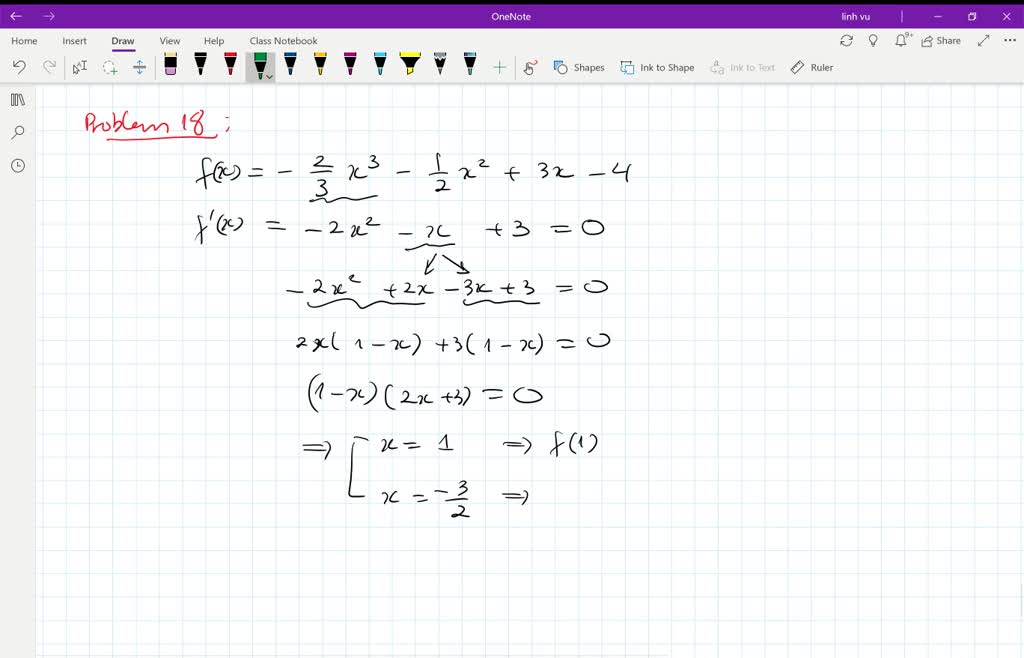 OneNote
linh vu
Home Insert Draw View Help Class Notebook
9+ Share
Shapes Ink to Shape Ink to Text Ruler
Problem 18 :
f(x) = - 2/3 x³ - 1/2 x² + 3x - 4
f'(x) = - 2x² - x + 3 = 0
- 2x² + 2x - 3x + 3 = 0
2x( 1 - x) + 3( 1 - x) = 0
(1 - x) ( 2x + 3) = 0
⇒ [ x = 1 ⇒ f(1)
x = -3/2 ⇒